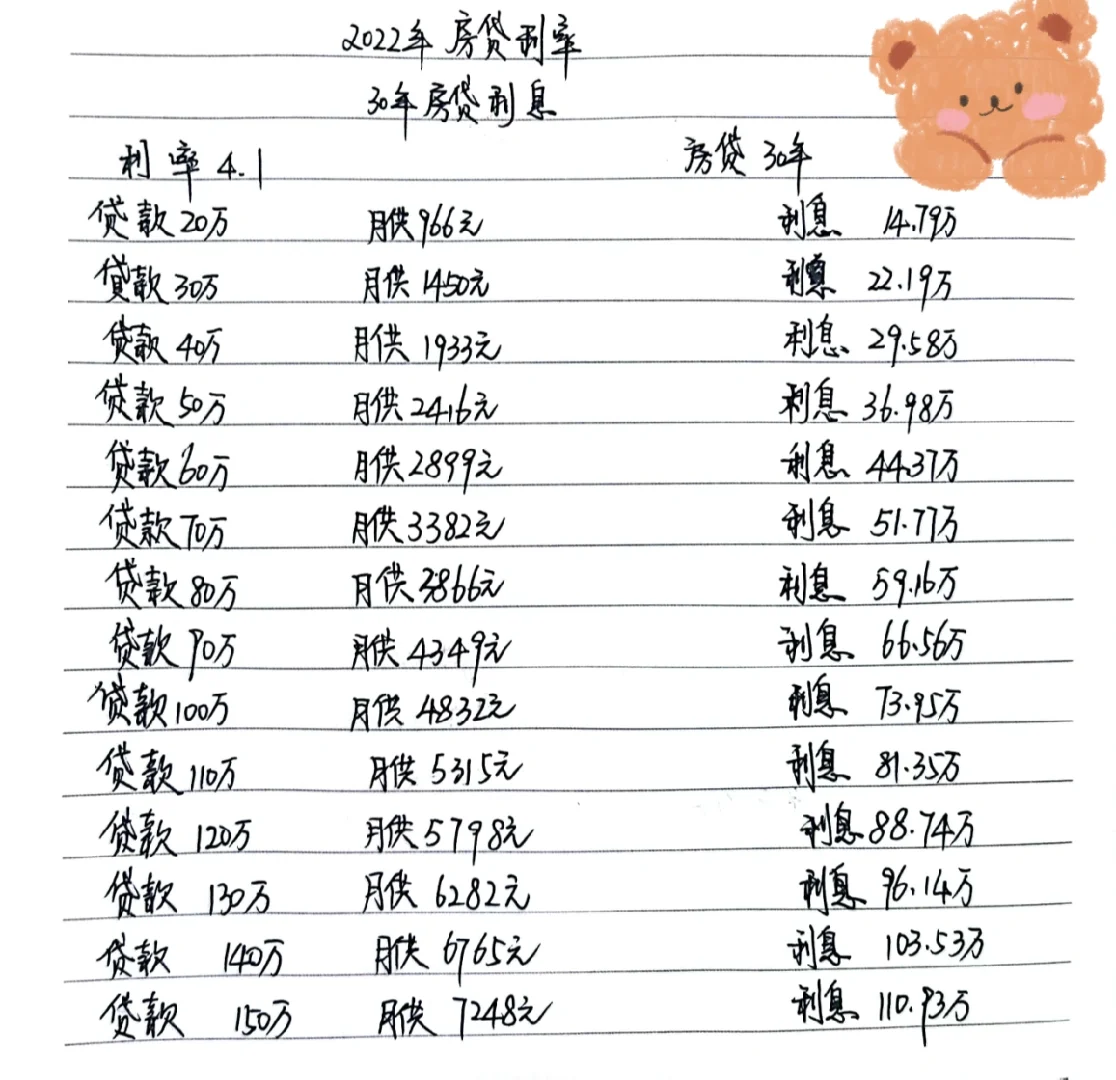 2022年房贷利率
30年房贷利息
利率4.1 房贷30年
贷款20万 月供966元 利息 14.79万
贷款30万 月供1450元 利息 22.19万
贷款40万 月供1933元 利息 29.58万
贷款50万 月供2416元 利息 36.98万
贷款60万 月供2899元 利息 44.37万
贷款70万 月供3382元 利息 51.77万
贷款80万 月供3866元 利息 59.16万
贷款90万 月供4349元 利息 66.56万
贷款100万 月供4832元 利息 73.95万
贷款110万 月供5315元 利息 81.35万
贷款120万 月供5798元 利息88.74万
贷款 130万 月供6282元 利息 96.14万
贷款 140万 月供6765元 利息 103.53万
贷款 150万 月供7248元 利息 110.93万